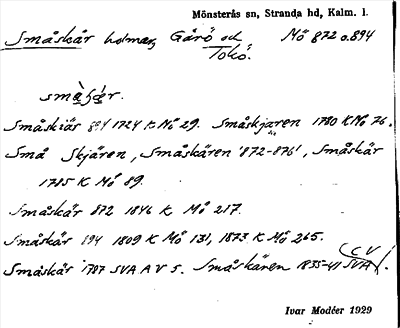 Mönsterås sn, Stranda hd, Kalm. l.
Småskär holmar, Gårö och Tokö. Mö 872 o. 894
Småskiär 894 1724 K Mö 29. Småskjären 1780 K Mö 76.
Små Skjären, Småskären '872-876', Småskär
1785 K Mö 89.
Småskär 872 1846 K Mö 217.
Småskär 894 1809 K Mö 131, 1873 K Mö 265.
Småskär 1787 SVA A V 5. Småskären 1835-41 SVA C V 1.
Ivar Modéer 1929